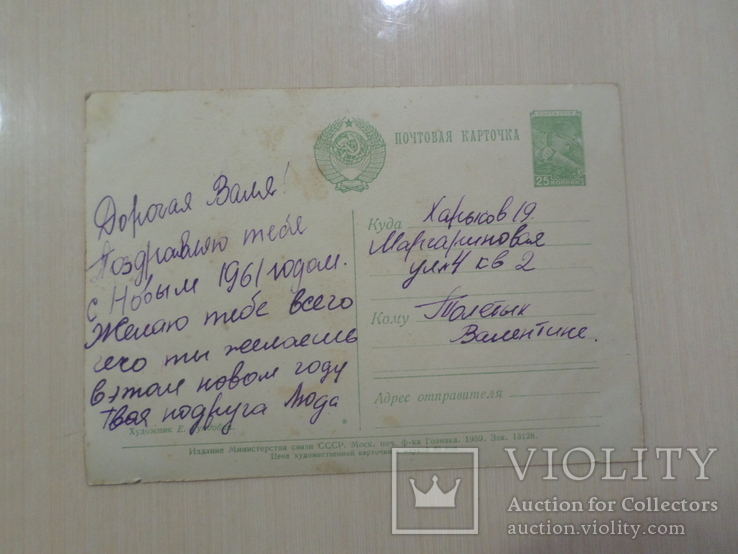 ПОЧТОВАЯ КАРТОЧКА
ПОЧТА СССР
25 КОПЕЕК
Дорогая Валя!
Поздравляю тебя
с Новым 1961 годом.
Желаю тебе всего
чего ты желаешь
в этом новом году
Твоя подруга Люда
Куда Харьков 19.
Маргариновая
ул 4 кв 2
Кому
Валентине.
Адрес отправителя
Художник Е.
Издание Министерства связи СССР. Моск. печ. ф-ка Гознака. 1959. Зак.
Цена художественной карточки
VIOLITY
Auction for Collectors
auction.violity.com